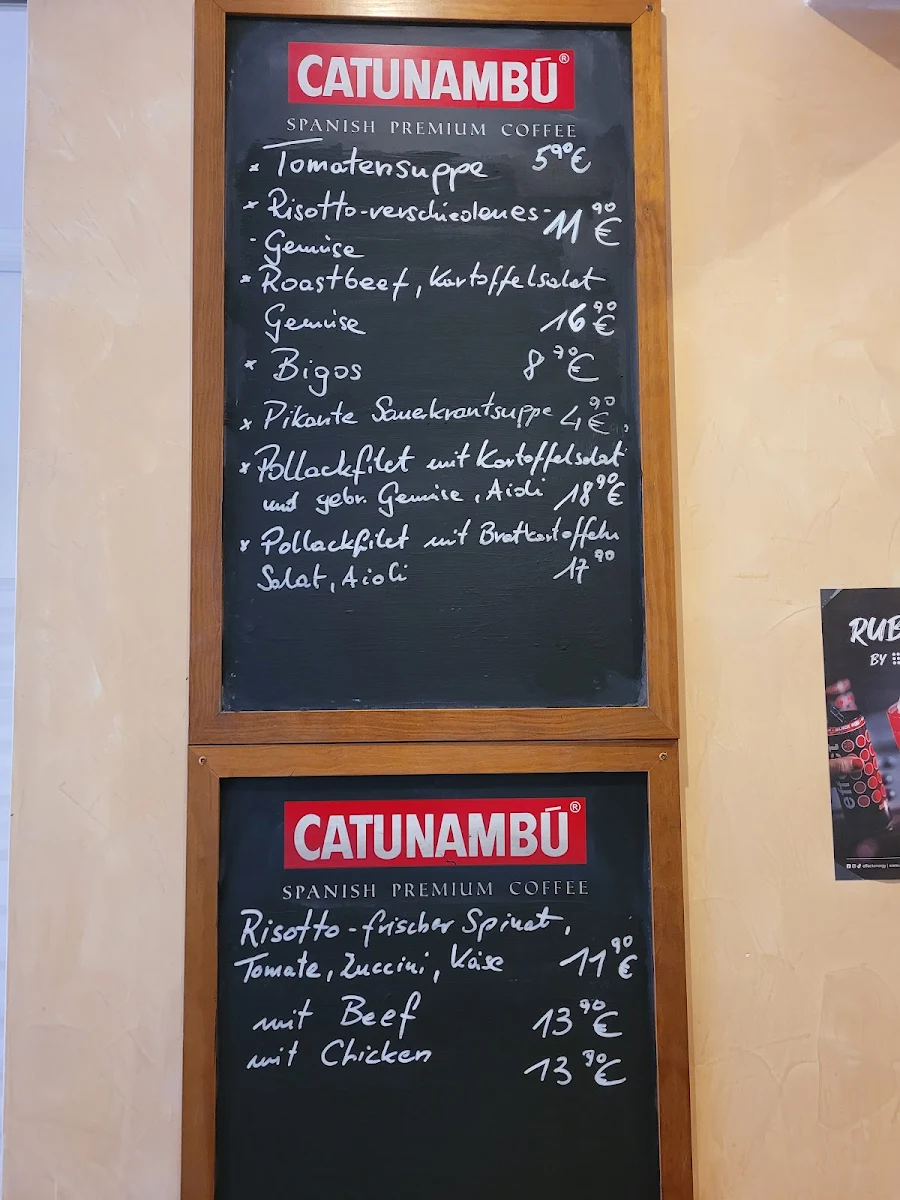 CATUNAMBÚ®
SPANISH PREMIUM COFFEE
x Tomatensuppe 5⁹⁰€
x Risotto-verschiedenes- 11⁹⁰€
- Gemüse
x Roastbeef, Kartoffelsalat
Gemüse 16⁹⁰€
x Bigos 8⁹⁰€
x Pikante Sauerkrautsuppe 4⁹⁰€
x Pollackfilet mit Kartoffelsalat
und gebr. Gemüse, Aioli 18⁹⁰€
x Pollackfilet mit Bratkartoffeln
Salat, Aioli 17⁹⁰
CATUNAMBÚ®
SPANISH PREMIUM COFFEE
Risotto-frischer Spinat,
Tomate, Zuccini, Käse 11⁹⁰€
mit Beef 13⁹⁰€
mit Chicken 13⁹⁰€
RUB
BY
eff